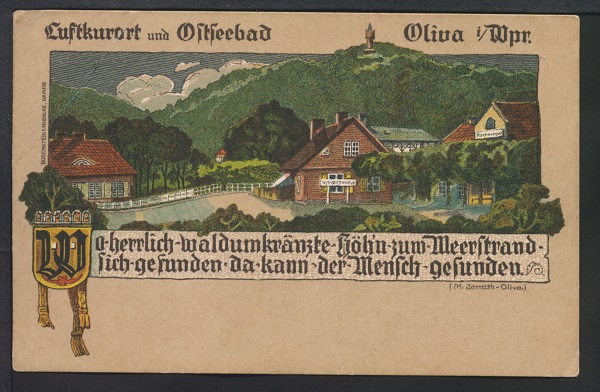 Luftkurort und Ostseebad Oliva i/Wpr.
Wo herrlich waldumkränzte Höh'n zum Meerstrand
sich gefunden da kann der Mensch gesunden.
(M. Zerrath-Oliva)